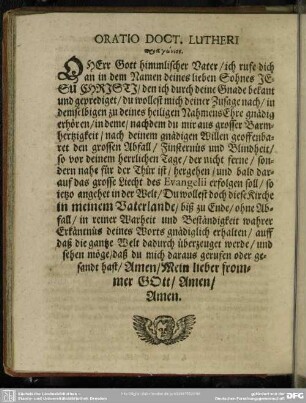 ORATIO DOCT. LUTHERI
O HErr Gott himmlischer Vater/ ich rufe dich
an in dem Namen deines lieben Sohnes JE-
SU CHRISTI/ den ich durch deine Gnade bekant
und geprediget/ du wollest mich deiner Zusage nach/ in
demselbigen zu deines heiligen Nahmens Ehre gnädig
erhören/ in deme/ nachdem du mir aus grosser Barm-
hertzigkeit/ nach deinem gnädigen Willen geoffenba-
ret den grossen Abfall/ Finsternüs und Blindheit/
so vor deinem herrlichen Tage/ der nicht ferne/ son-
dern nahe für der Thür ist/ hergehen/ und bald dar-
auf das grosse Liecht des Evangelii erfolgen soll/ so
ietzo angehet in der Welt/ Du wollest doch diese Kirche
in meinem Vaterlande/ biß zu Ende/ ohne Ab-
fall/ in reiner Warheit und Beständigkeit wahrer
Erkäntnüs deines Worts gnädiglich erhalten/ auff
daß die gantze Welt dadurch überzeuget werde/ und
sehen möge/ daß du mich daraus gerufen oder ge-
sandt hast/ Amen/ Mein lieber from-
mer GOtt/ Amen/
Amen.